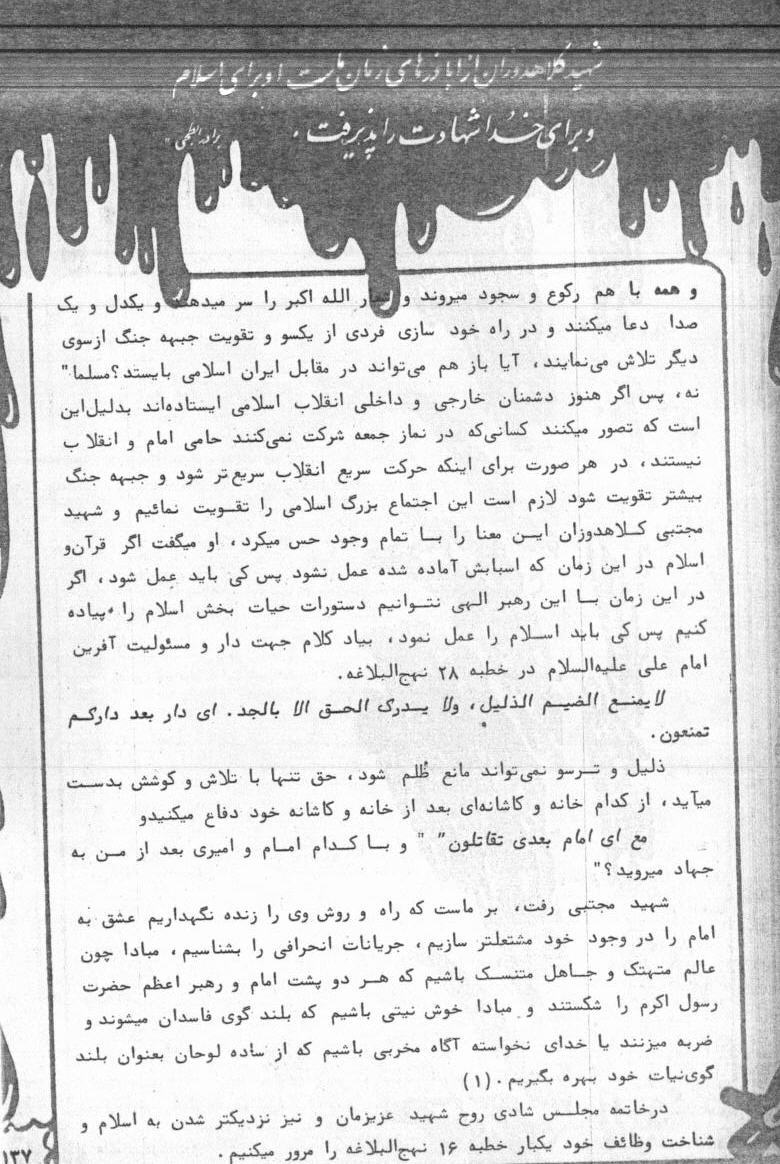 شهید کلاهدوزان از اباذرهای زمان ماست او برای اسلام
و برای خدا شهادت را پذیرفت .
و همه با هم رکوع و سجود میروند و شعار الله اکبر را سر میدهند و یکدل و یک
صدا دعا میکنند و در راه خود سازی فردی از یکسو و تقویت جبهه جنگ ازسوی
دیگر تلاش می‌نمایند، آیا باز هم می‌تواند در مقابل ایران اسلامی بایستد؟مسلما"
نه، پس اگر هنوز دشمنان خارجی و داخلی انقلاب اسلامی ایستاده‌اند بدلیل‌این
است که تصور میکنند کسانی‌که در نماز جمعه شرکت نمی‌کنند حامی امام و انقلا ب
نیستند، در هر صورت برای اینکه حرکت سریع انقلاب سریع‌تر شود و جبهه جنگ
بیشتر تقویت شود لازم است این اجتماع بزرگ اسلامی را تقـویت نمائیم و شهید
مجتبی کـلاهدوزان ایـن معنا را بـا تمام وجود حس میکرد، او میگفت اگر قرآن‌و
اسلام در این زمان که اسبابش آماده شده عمل نشود پس کی باید عمل شود، اگر
در این زمان بـا این رهبر الهی نتـوانیم دستورات حیات بخش اسلام را پیاده
کنیم پس کی باید اسـلام را عمل نمود، بیاد کلام جهت دار و مسئولیت آفرین
امام علی علیه‌السلام در خطبه ۲۸ نهج‌البلاغه.
لایمنـع الضیـم الذلیل، ولا یـدرک الحـق الا بالجد. ای دار بعد دارکـم
تمنعون.
ذلیل و تـرسو نمی‌تواند مانع ظُلم شود، حق تنها با تلاش و کوشش بدسـت
میآید، از کدام خانه و کاشانه‌ای بعد از خانه و کاشانه خود دفاع میکنیدو
مع ای امام بعدی تقاتلون" " و بـا کـدام امـام و امیری بعد از مـن به
جهاد میروید؟"
شهید مجتبی رفت، بر ماست که راه و روش وی را زنده نگهداریم عشق به
امام را در وجود خود مشتعلتر سازیم، جریانات انحرافی را بشناسیم، مبادا چون
عالم متهتک و جـاهل متنسـک باشیم که هـر دو پشت امام و رهبر اعظم حضرت
رسول اکرم را شکستند و مبادا خوش نیتی باشیم که بلند گوی فاسدان میشوند و
ضربه میزنند یا خدای نخواسته آگاه مخربی باشیم که از ساده لوحان بعنوان بلند
گوی‌نیات خود بهره بگیریم.(۱)
درخاتمه مجلـس شادی روح شهید عزیزمان و نیز نزدیکتر شدن به اسلام و
شناخت وظائف خود یکبار خطبه ۱۶ نهج‌البلاغه را مرور میکنیم.
۱۳۷